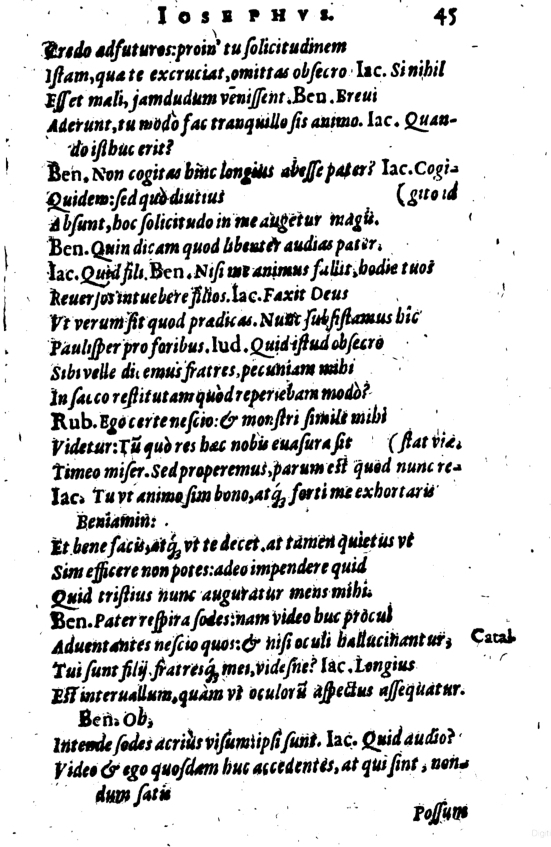 IOSEPHVS. 45
Credo adfuturos: proin' tu solicitudinem
Istam, qua te excruciat, omittas obsecro Iac. Si nihil
Esset mali, jamdudum vēnissent. Ben. Breui
Aderunt, tu modò fac tranquillo sis animo. Iac. Quan-
do istbuc erit?
Ben. Non cogitas hinc longius abesse pater? Iac. Cogi-
Quidem: sed quò diutius (gito id
Absunt, hoc solicitudo in me augetur magis.
Ben. Quin dicam quod libenter audias pater.
Iac. Quid fili. Ben. Nisi me animus fallit, hodie tuos
Reuersos intuebere filios. Iac. Faxit Deus
Vt verum sit quod pradicas. Nunc subsistamus hic
Paulisper pro foribus. Iud. Quid istud obsecro
Sibi velle dicemus fratres, pecuniam mihi
In sacco restitutam quòd reperiebam modò?
Rub. Ego certe nescio: & monstri simile mihi
Videtur: Tū quò res hac nobis euasura sit (stat via.
Timeo miser. Sed properemus, parum est quod nunc re-
Iac. Tu vt animo sim bono, atq́; forti me exhortaris
Beniamin:
Et bene facis, atq́; vt te decet. at tamen quietus vt
Sim efficere non potes: adeo impendere quid
Quid tristius nunc auguratur mens mihi.
Ben. Pater respira sodes: nam video huc procul
Aduentantes nescio quos: & nisi oculi hallucinantur, Catal.
Tui sunt filij. fratresq́; mei, videsne? Iac. Longius
Est interuallum, quàm vt oculorū aspectus assequatur.
Ben. Ob,
Intende sodes acrius visum: ipsi sunt. Iac. Quid audio?
Video & ego quosdam huc accedentes, at qui sint, non-
dum satis
Possum